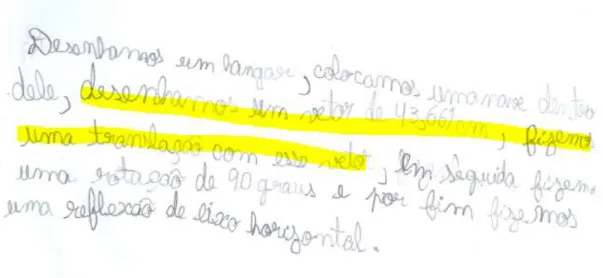 Desenhamos um hangar, colocamos uma nave dentro
dele, desenhamos um vetor de 43,661cm, fizemos
uma translação com esse vetor, em seguida fizemo
uma rotação de 90 graus e por fim fizemos
uma reflexão de eixo horizontal.